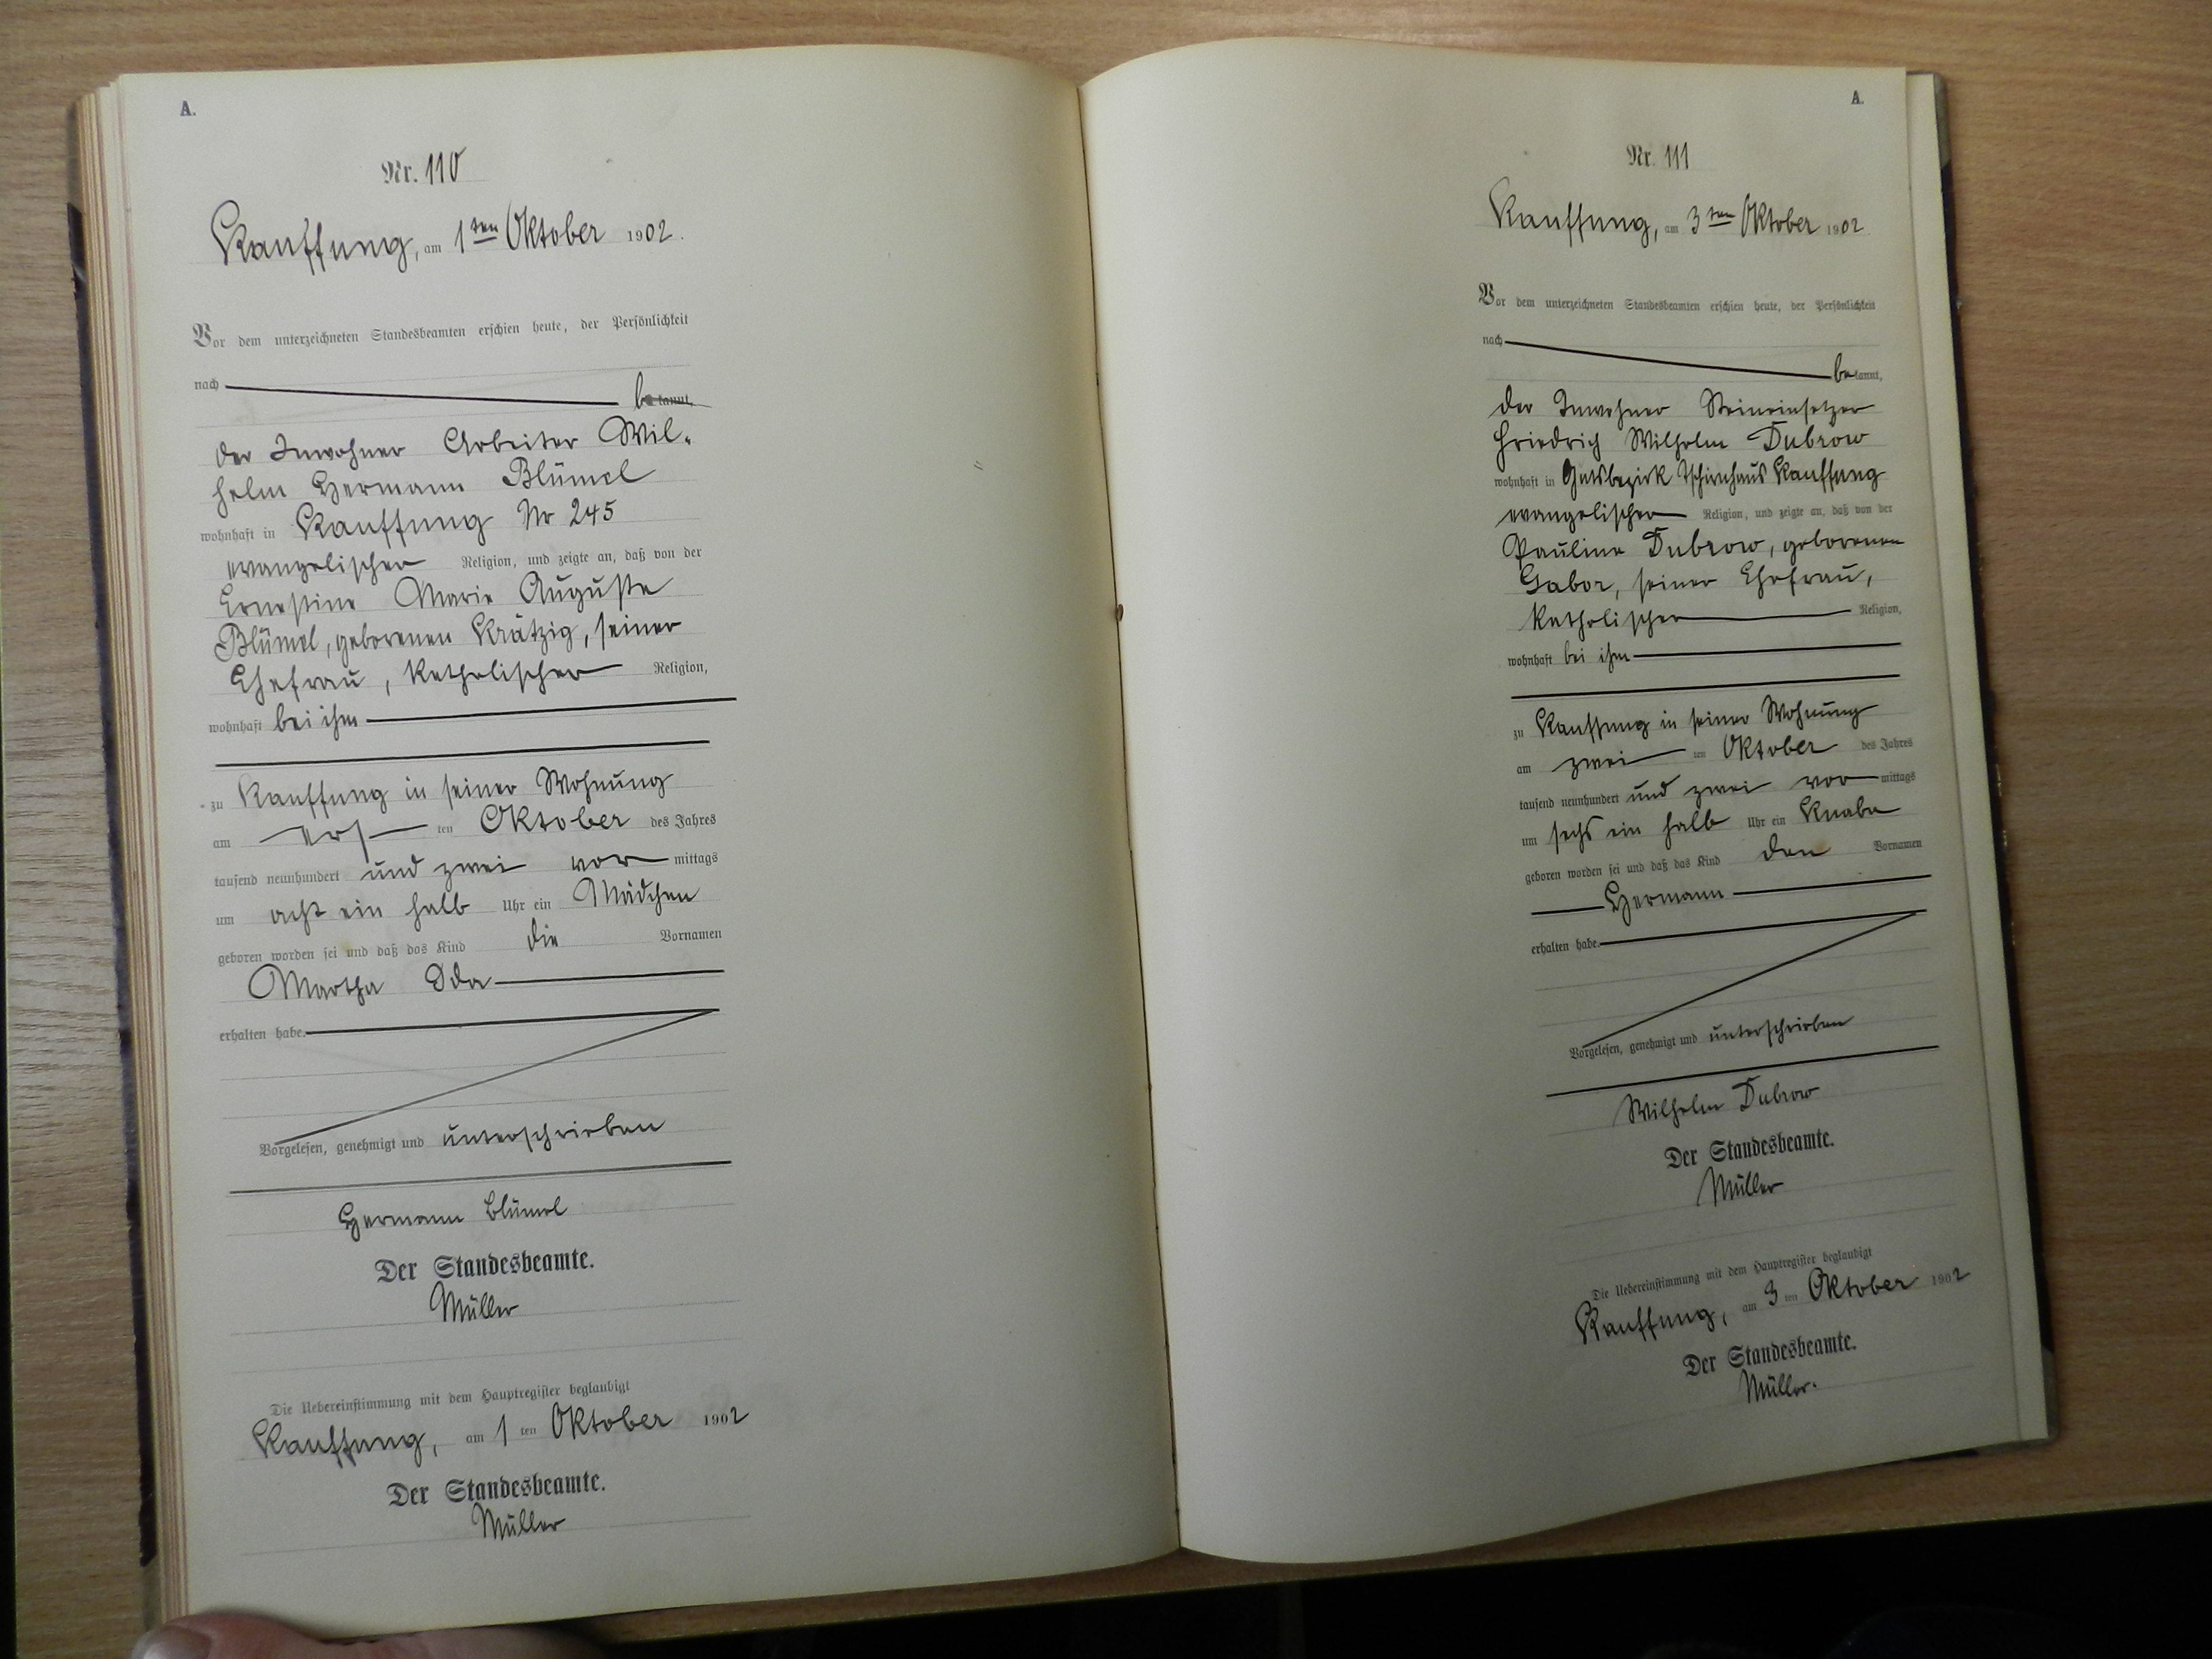 A.
Nr. 110
Kauffung, am 1ten Oktober 1902.
Vor dem unterzeichneten Standesbeamten erschien heute, der Persönlichkeit
nach bekannt,
der Inwohner Arbeiter Wil-
helm Hermann Blümel
wohnhaft in Kauffung Nr 245
evangelischer Religion, und zeigte an, daß von der
Ernestine Marie Auguste
Blümel, geborenen Krätzig, seiner
Ehefrau, katholischer Religion,
wohnhaft bei ihm
zu Kauffung in seiner Wohnung
am ersten Oktober des Jahres
tausend neunhundert und zwei vormittags
um acht ein halb Uhr ein Mädchen
geboren worden sei und daß das Kind die Vornamen
Martha Ida
erhalten habe.
Vorgelesen, genehmigt und unterschrieben
Hermann Blümel
Der Standesbeamte.
Müller
Die Uebereinstimmung mit dem Hauptregister beglaubigt
Kauffung, am 1ten Oktober 1902
Der Standesbeamte.
Müller
A.
Nr. 111
Kauffung, am 3ten Oktober 1902
Vor dem unterzeichneten Standesbeamten erschien heute, der Persönlichkeit
nach bekannt,
der Inwohner Steineinsetzer
Friedrich Wilhelm Dubrow
wohnhaft in Gutsbezirk Tschirnhaus Kauffung
evangelischer Religion, und zeigte an, daß von der
Pauline Dubrow, geborenen
Gabor, seiner Ehefrau,
katholischer Religion,
wohnhaft bei ihm
zu Kauffung in seiner Wohnung
am zweiten Oktober des Jahres
tausend neunhundert und zwei vormittags
um sechs ein halb Uhr ein Knabe
geboren worden sei und daß das Kind den Vornamen
Hermann
erhalten habe.
Vorgelesen, genehmigt und unterschrieben
Wilhelm Dubrow
Der Standesbeamte.
Müller
Die Uebereinstimmung mit dem Hauptregister beglaubigt
Kauffung, am 3ten Oktober 1902
Der Standesbeamte.
Müller.